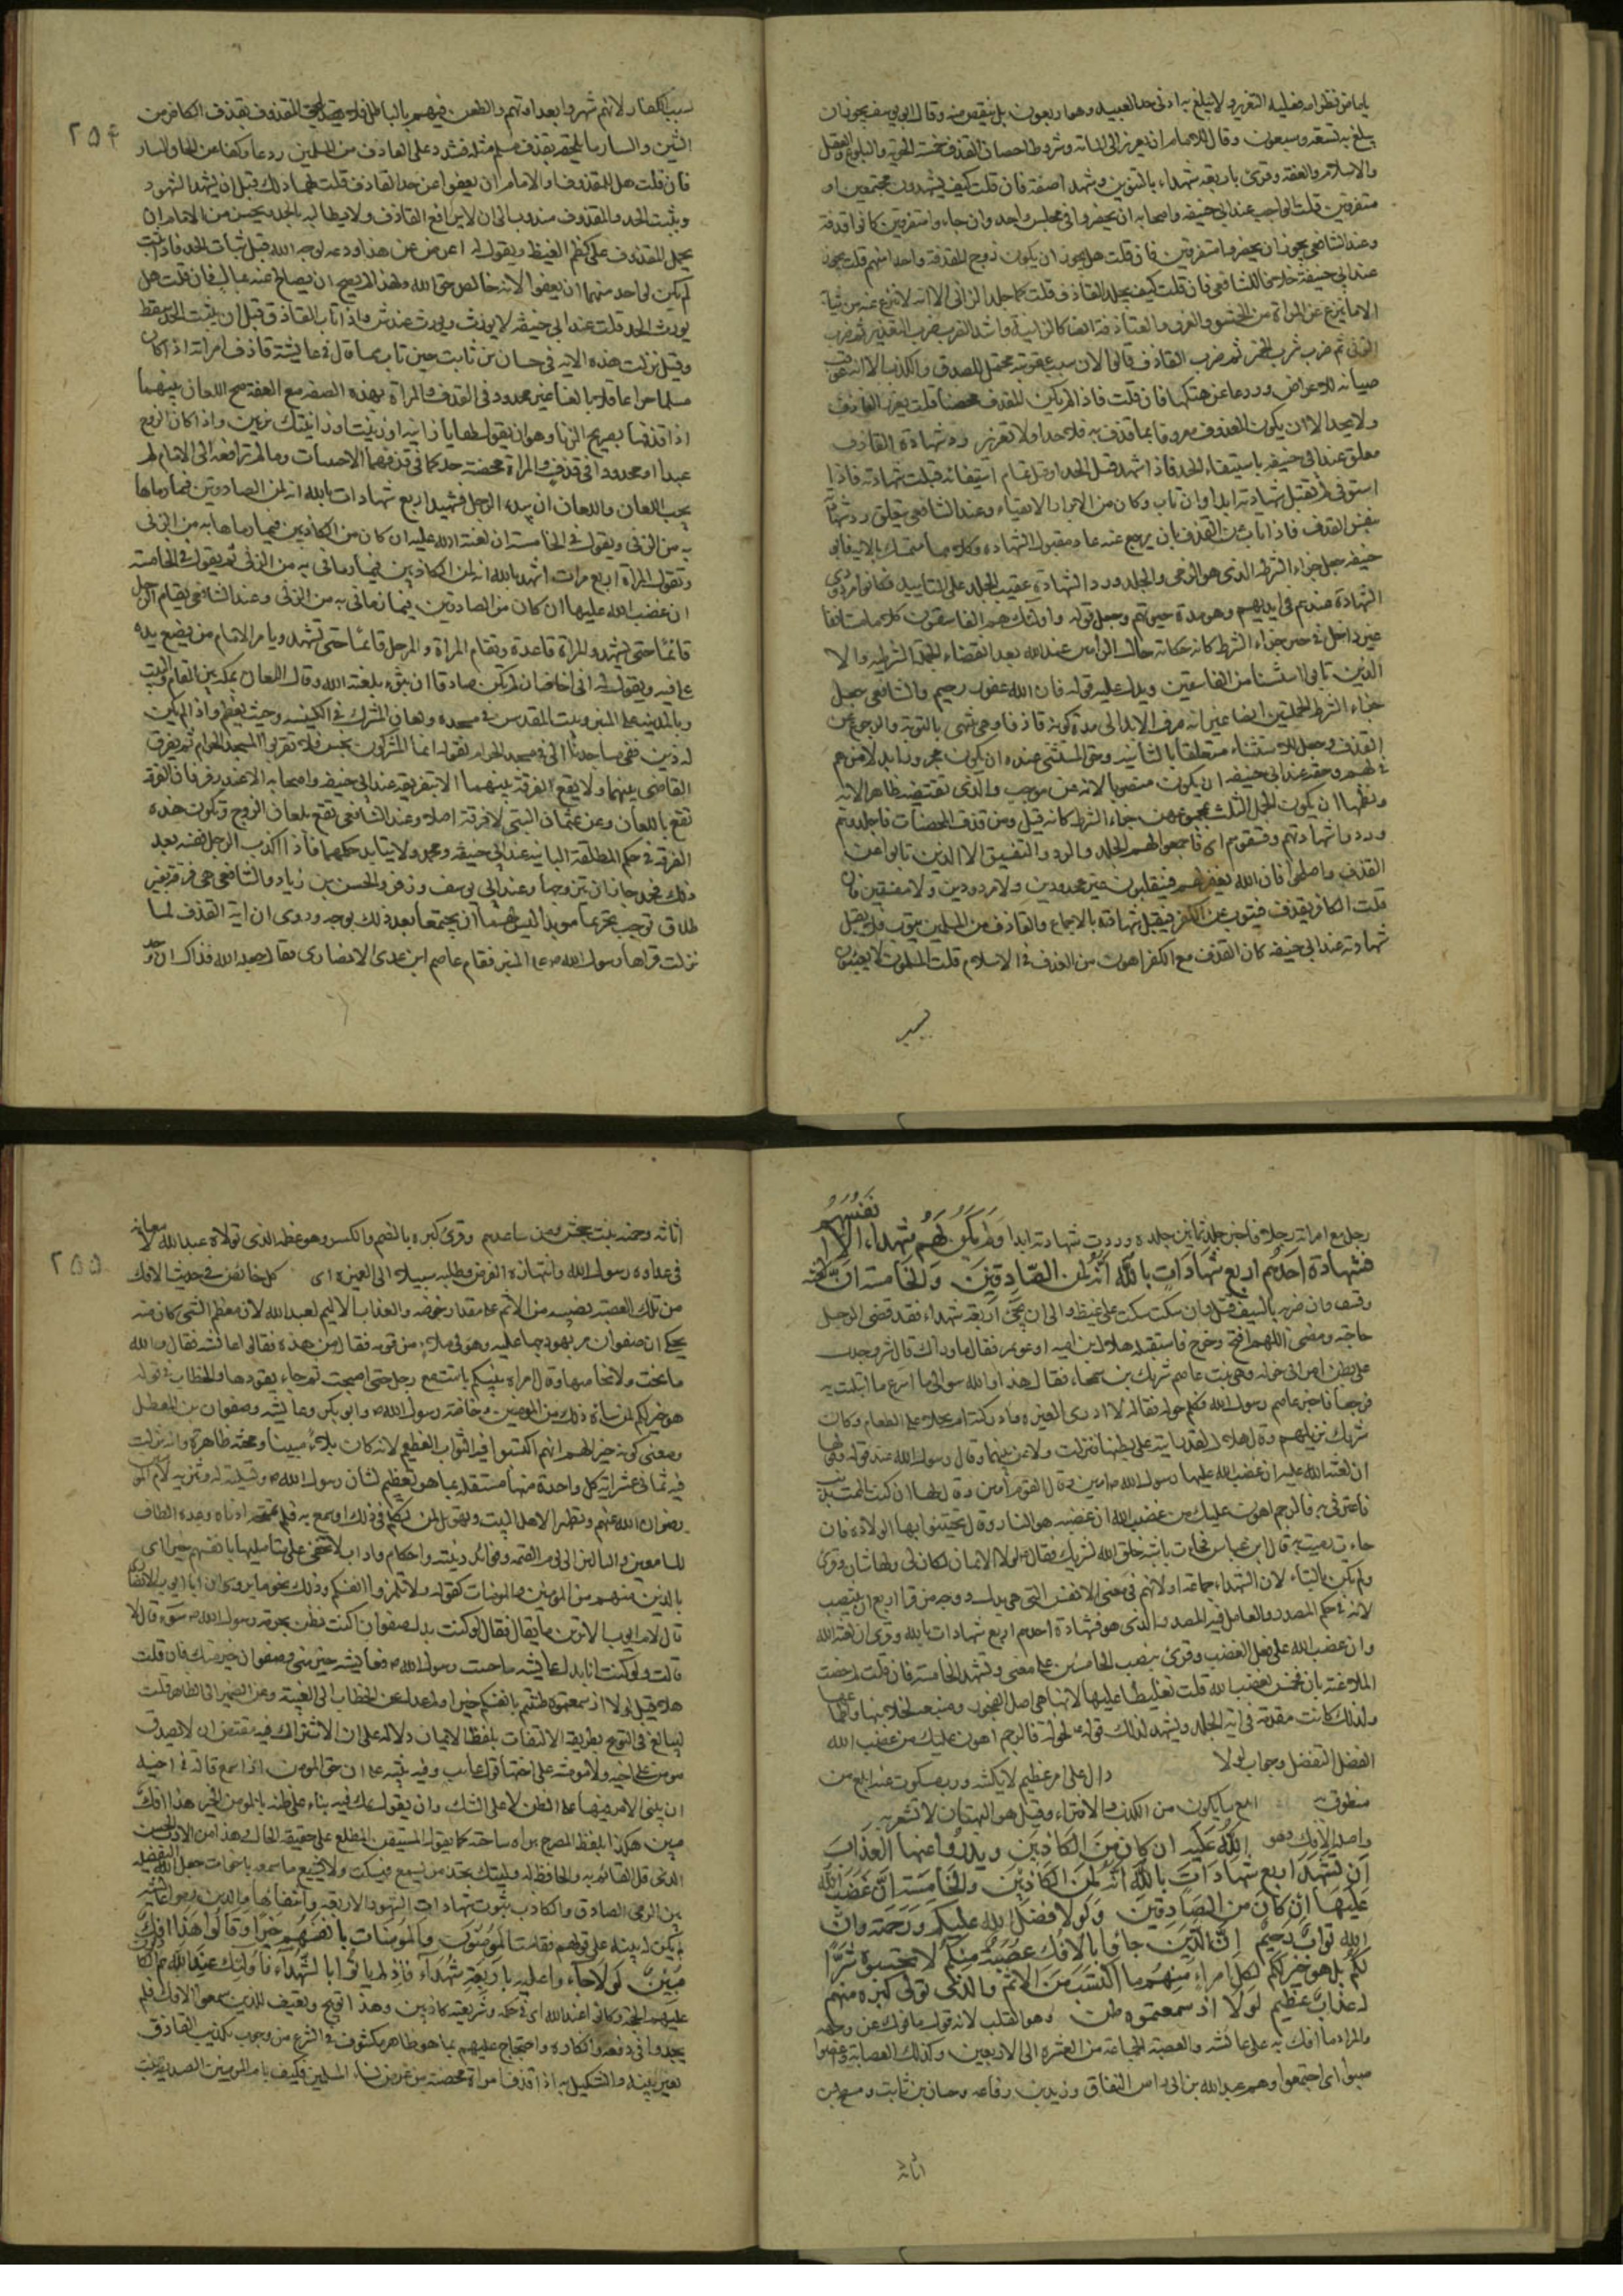 يا ماص بظر امه فعليه التعزير ولا يبلغ به ادنى حد العبيد وهو اربعون بل ينقص منه وقال ابو يوسف يجوز ان
يبلغ به تسعة وسبعون وقال للامام ان يعزر الى المائة وشروط احصان القذف خمسة الحرية والبلوغ والعقل
والاسلام والعفة وقرئ باربعة شهداء بالتنوين وشهداء صفة فان قلت كيف يشهدون مجتمعين او
متفرقين قلت الواجب عند ابي حنيفه واصحابه ان يحضروا في مجلس واحد وان جاءوا متفرقين كانوا قذفة
وعند الشافعي يجوز ان يحضروا متفرقين فان قلت هل يجوز ان يكون زوج المقذوفة واحدا منهم قلت يجوز
عند ابي حنيفة خلافا للشافعي فان قلت كيف يجلد القاذف قلت كما جلد الزاني الا انه لا ينزع عنه من ثيابه
الا ما ينزع عن المراة من الحشو والفرو والقاذفة ايضا كالزانية واشد الضرب ضرب التعزير ثم ضرب
الزنى ثم ضرب شرب الخمر ثم ضرب القاذف قالوا لان سبب عقوبته محتمل للصدق والكذب الا انه عوقب
صيانة للاعراض وردعا عن هتكها فان قلت فاذا لم يكن المقذوف محصنا قلت يعزر القاذف
ولا يحد الا ان يكون المقذوف معروفا بما قذف به فلا حد ولا تعزير رد شهادة القاذف
معلق عند ابي حنيفه باستيفاء الحد فاذا شهد قبل الحد او قبل تمام استيفائه قبلت شهادته فاذا
استوفى لم تقبل شهادته ابدا وان تاب وكان من الابرار الاتقياء وعند الشافعي يتعلق رد شهادته
بنفس القذف فاذا تاب عن القذف بان يرجع عنه عاد مقبول الشهادة وكلاهما متمسك بالاية فابو
حنيفه جعل جزاء الشرط الذي هو الرمي والجلد ورد الشهادة عقيب الجلد على التابيد فكانوا مردودي
الشهادة عندهم في ابدهم وهو مدة حيوتهم وجعل قوله واولئك هم الفاسقون كلاما مستانفا
غير داخل في حيز جزاء الشرط كانه حكاية حال الرامين عند الله بعد انقضاء الجملة الشرطية والا
الذين تابوا استثناء من الفاسقين ويدل عليه قوله فان الله غفور رحيم والشافعي جعل
جزاء الشرط الجملتين ايضا غير انه صرف الابد الى مدة كونه قاذفا وهي تنتهي بالتوبة والرجوع عن
القذف وجعل الاستثناء متعلقا بالثانية وحق المستثنى عنده ان يكون مجرورا بدلا من هم
في لهم وحقه عند ابي حنيفه ان يكون منصوبا لانه عن موجب والذي تقتضيه ظاهر الاية
ونظمها ان يكون الجمل الثلث بمجموعهن جزاء الشرط كانه قيل ومن قذف المحصنات فاجلدوهم
وردوا شهادتهم وفسقوهم اي فاجمعوا لهم الجلد والرد والتفسيق الا الذين تابوا عن
القذف واصلحوا فان الله يغفر لهم فينقلبون غير مجلودين ولا مردودين ولا مفسقين فان
قلت الكافر يقذف فيتوب عن الكفر فيقبل شهادته بالاجماع والقاذف من المسلمين يتوب فلا يقبل
شهادته عند ابي حنيفه كان القذف مع الكفر اهون من القذف في الاسلام قلت المسلمون لا يعبئون
٢٥۴
بسب الكفار لانهم شهروا بعداوتهم والطعن فيهم بالباطل فلا يلحق المقذوف بقذف الكافر من
الشين والسار ما يلحقه بقذف مسلم مثله فشدد على القاذف من المسلمين ردعا وكفا عن الحاق السار
فان قلت هل للمقذوف او للامام ان يعفو عن حد القاذف قلت لهما ذلك قبل ان يشهد الشهود
ويثبت الحد والمقذوف مندوب الى ان لا يرافع القاذف ولا يطالبه بالحد ويحسن من الامام ان
يحمل المقذوف على كظم الغيظ ويقول له اعرض عن هذا ودعه لوجه الله قبل ثبات الحد فاذا ثبت
لم يكن لواحد منهما ان يعفو لانه خالص حق الله ولهذا لم يصح ان يصالح عنه بمال فان قلت هل
يورث الحد قلت عند ابي حنيفه لا يورث ويورث عند ش واذا تاب القاذف قبل ان يثبت الحد سقط
وقيل نزلت هذه الاية في حسان بن ثابت حين تاب مما قال في عايشة قاذف امراته اذا كان
مسلما حرا عاقلا بالغا غير محدود في القذف والمراة بهذه الصفة مع العفة صح اللعان بينهما
اذا قذفها بصريح الزنا وهو ان يقول لها يا زانية او زنيت او زايتك تزنين واذا كان الزوج
عبدا او محدودا في قذف والمراة محصنة حد كما في قذفهما الاجنبيات وما لم ترافعه الى الامام لم
يجب اللعان واللعان ان يبدء الرجل فيشهد اربع شهادات بالله انه لمن الصادقين فيما رماها
به من الزنى ويقول في الخامسة ان لعنة الله عليه ان كان من الكاذبين فيما رماها به من الزنى
وتقول المراة اربع مرات اشهد بالله انه لمن الكاذبين فيما رماني به من الزنى ثم يقول في الخامسة
ان غضب الله عليها ان كان من الصادقين فيما رماني به من الزنى وعند الشافعي يقام الرجل
قائما حتى يشهد والمراة قاعدة وتقام المراة والرجل قائما حتى تشهد ويامر الامام من يضع يده
على فيه ويقول له اني اخاف ان لم تكن صادقا ان تبوء بلعنة الله وقال اللعان بمكة بين المقام والبيت
وبالمدينة على المنبر وبيت المقدس في مسجده ولعان المشرك في الكنيسة وحيث يعظم واذا لم يكن
له دين ففي مساجدنا الا في مسجد الحرام لقوله انما المشركون نجس فلا تقربوا المسجد الحرام ثم يفرق
القاضي بينهما ولا يقع الفرقة بينهما الا بتفريقه عند ابي حنيفه واصحابه الا عند زفر فان الفرقة
تقع باللعان وعن عثمان البتي لا فرقة اصلا وعند الشافعي تقع بلعان الزوج وتكون هذه
الفرقة في حكم المطلقة البائنة عند ابي حنيفه ومحمد ولا يتابد حكمهما فاذا اكذب الرجل نفسه بعد
ذلك فحد جاز ان يتزوجها وعند ابي يوسف وزفر والحسن بن زياد والشافعي هي فرقة بغير
طلاق توجب تحريما موبدا ليس لهما ان يجتمعا بعد ذلك بوجه وروى ان اية القذف لما
نزلت قراها رسول الله ص على المنبر فقام عاصم ابن عدي الانصاري فقال جعلني الله فداك ان وجد
رجل مع امراته رجلا فاخبر جلد ثمانين جلده وردت شهادته ابدا وَلَم يَكُن لَهُم شُهَداء الا انفسهم
فشهادة احدهم اربع شهادات بالله انه لمن الصادقين والخامسة ان لعنة
وفسق وان ضربه بالسيف قتل وان سكت سكت على غيظ والى ان يجئ اربعة شهداء فقد قضى الرجل
حاجته ومضى اللهم افتح وخرج فاستقبله هلال ابن اميه او عويمر فقال ما وراك قال شر وجدت
على بطن امراتي خولة وهي بنت عاصم شريك بن سحماء فقال هذا والله سوالي ما اسرع ما ابتليت به
فرجعا فاخبر عاصم رسول الله وكلم خولة فقالت لا ادري الغيرة ادركته ام بخلا على الطعام وكان
شريك نزيلهم وقال هلال لقد رايته على بطنها فنزلت ولاعن بينهما وقال رسول الله عند قوله وقولها
ان لعنة الله عليه ان غضب الله عليها رسول الله ص امين وقال القوم امين وقال لها ان كنت الممت بذنب
فاعترفي به فالرجم اهون عليك من غضب الله ان غضبه هو النار وقال تحينوا بها الولادة فان
ولم تكن بالتاء لان الشهداء جماعة او لانهم في معنى الانفس التي هي بدل ووجه من قرا اربع ان ينتصب
لانه في حكم المصدر والعامل فيه المصدر الذي هو فشهادة احدهم اربع شهادات بالله وقرئ ان لعنة الله
وان غضب الله على فعل الغضب وقرئ بنصب الخامستين على معنى وتشهد الخامسة فان قلت لم خصت
الملاعنة بان تخمس بغضب الله قلت تغليظا عليها لانها هي اصل الفجور ومنبعه بخلابتها واطماعها
ولذلك كانت مقدمة في اية الجلد ويشهد لذلك قوله لخولة فالرجم اهون عليك من غضب الله
الفضل التفضل وجواب لولا دال على امر عظيم لا يكتنه ورب مسكوت عنه ابلغ من
منطوق به ابلغ ما يكون من الكذب والافتراء وقيل هو البهتان لا تشعر به
واصله الافك وهو الله عليه ان كان من الكاذبين ويدرؤا عنها العذاب
ان تشهد اربع شهادات بالله انه لمن الكاذبين والخامسة ان غضب الله
عليها ان كان من الصادقين ولولا فضل الله عليكم ورحمته وان
الله تواب رحيم ان الذين جاؤا بالافك عصبة منكم لا تحسبوه شرا
لكم بل هو خير لكم لكل امرئ منهم ما اكتسب من الاثم والذي تولى كبره منهم
له عذاب عظيم لولا اذ سمعتموه ظن وهو القلب لانه قول مافوك عن وجهه
والمراد ما افك به على عائشه والعصبة الجماعة من العشرة الى الاربعين وكذلك العصابة واعصوا
صبوا اي اجتمعوا وهم عبد الله بن ابي راس النفاق وزيد بن رفاعه وحسان بن ثابت ومسطح بن
اثاثه
٢٥٥
اثاثه وحمنه بنت جحش ومن ساعدهم وقرئ كبره بالضم والكسر وهو عظمه الذي تولاه عبد الله لامعانه
في عداوة رسول الله وانتهازه الفرص وطلبه سبيلا الى الغميزة اي كل خائض في حديث الافك
من تلك العصبة نصيبه من الاثم على مقدار خوضه والعذاب الاليم لعبد الله لان معظم الشر كان منه
يحكى ان صفوان مر بهودجها عليه وهو في ملاء من قومه فقال من هذه فقالوا عائشه فقال والله
ما نجت منه ولا نجا منها وقال امراة نبيكم باتت مع رجل حتى اصبحت ثم جاء يقودها والخطاب في قوله
هو خير لكم لمن ساءه ذلك من المومنين وخاصة رسول الله ص وابو بكر وعايشه وصفوان بن المعطل
ومعنى كونه خيرا لهم انهم اكتسبوا فيه الثواب العظيم لانه كان بلاء مبينا ومحنة ظاهرة وانه نزلت
فيه ثماني عشرة اية كل واحدة منها مستقلة بما هو تعظيم لشان رسول الله ص وتسلية له وتنزيه لام المو
رضوان الله عليهم وتطهير لاهل البيت وتهويل لمن تكلم في ذلك او سمع به فلم تمجه اذناه وعدة الطاف
للسامعين والتالين الى يوم القيمة وفوائد دينية واحكام واداب لا تخفى على متامليها بانفسهم خيرا اي
بالذين منهم من المومنين والمومنات كقوله ولا تلمزوا انفسكم وذلك نحو ما يروى ان ابا ايوب الانصاري
قال لام ايوب الا ترين ما يقال فقالت لو كنت بدل صفوان اكنت تظن بحرمة رسول الله ص سوء قال لا
قالت ولو كنت انا بدل عايشه ما خنت رسول الله ص فعايشه خير مني وصفوان خير منك فان قلت
هلا قيل لولا اذ سمعتموه ظننتم بانفسكم خيرا ولم عدل عن الخطاب الى الغيبة وعن الضمير الى الظاهر قلت
ليبالغ في التوبيخ بطريقة الالتفات بلفظ الايمان دلالة على ان الاشتراك فيه مقتض ان لا يصدق
مومن على اخيه ولا مومنة على اختها قول عايب وفيه تنبيه على ان حق المومن اذا سمع قالة في اخيه
ان يبني الامر فيها على الظن لا على الشك وان يقول بملء فيه بناء على ظنه بالمومن الخير هذا افك
مبين هكذا بلفظ المصرح ببراءة ساحته كما يقول المستيقن المطلع على حقيقة الحال وهذا من الادب الحسن
الذي قل القائم به والحافظ له وليتك تجد من يسمع فيسكت ولا يشيع ما سمعه باخوات جعل الله التفصله
بين الرمي الصادق والكاذب ثبوت شهادات الشهود الاربعة وانتفائها والذين رموا عايشه
لم يكن لهم بينة على قولهم فقامت المؤمنون والمومنات بانفسهم خيرا وقالوا هذا افك
مبين لولا جاءوا عليه باربعة شهداء فاذ لم ياتوا بالشهداء فاولئك عند الله هم الكاذبون
عليهم الحجة وكانوا عند الله اي في حكمه وشريعته كاذبين وهذا توبيخ وتعنيف للذين سمعوا الافك فلم
يجدوا في دفعه وانكاره واحتجاج عليهم بما هو ظاهر مكشوف في الشرع من وجوب تكذيب القاذف
بغير بينة والتنكيل به اذا قذف امراة محصنة من عرض نساء المسلمين فكيف بام المومنين الصديقة بنت